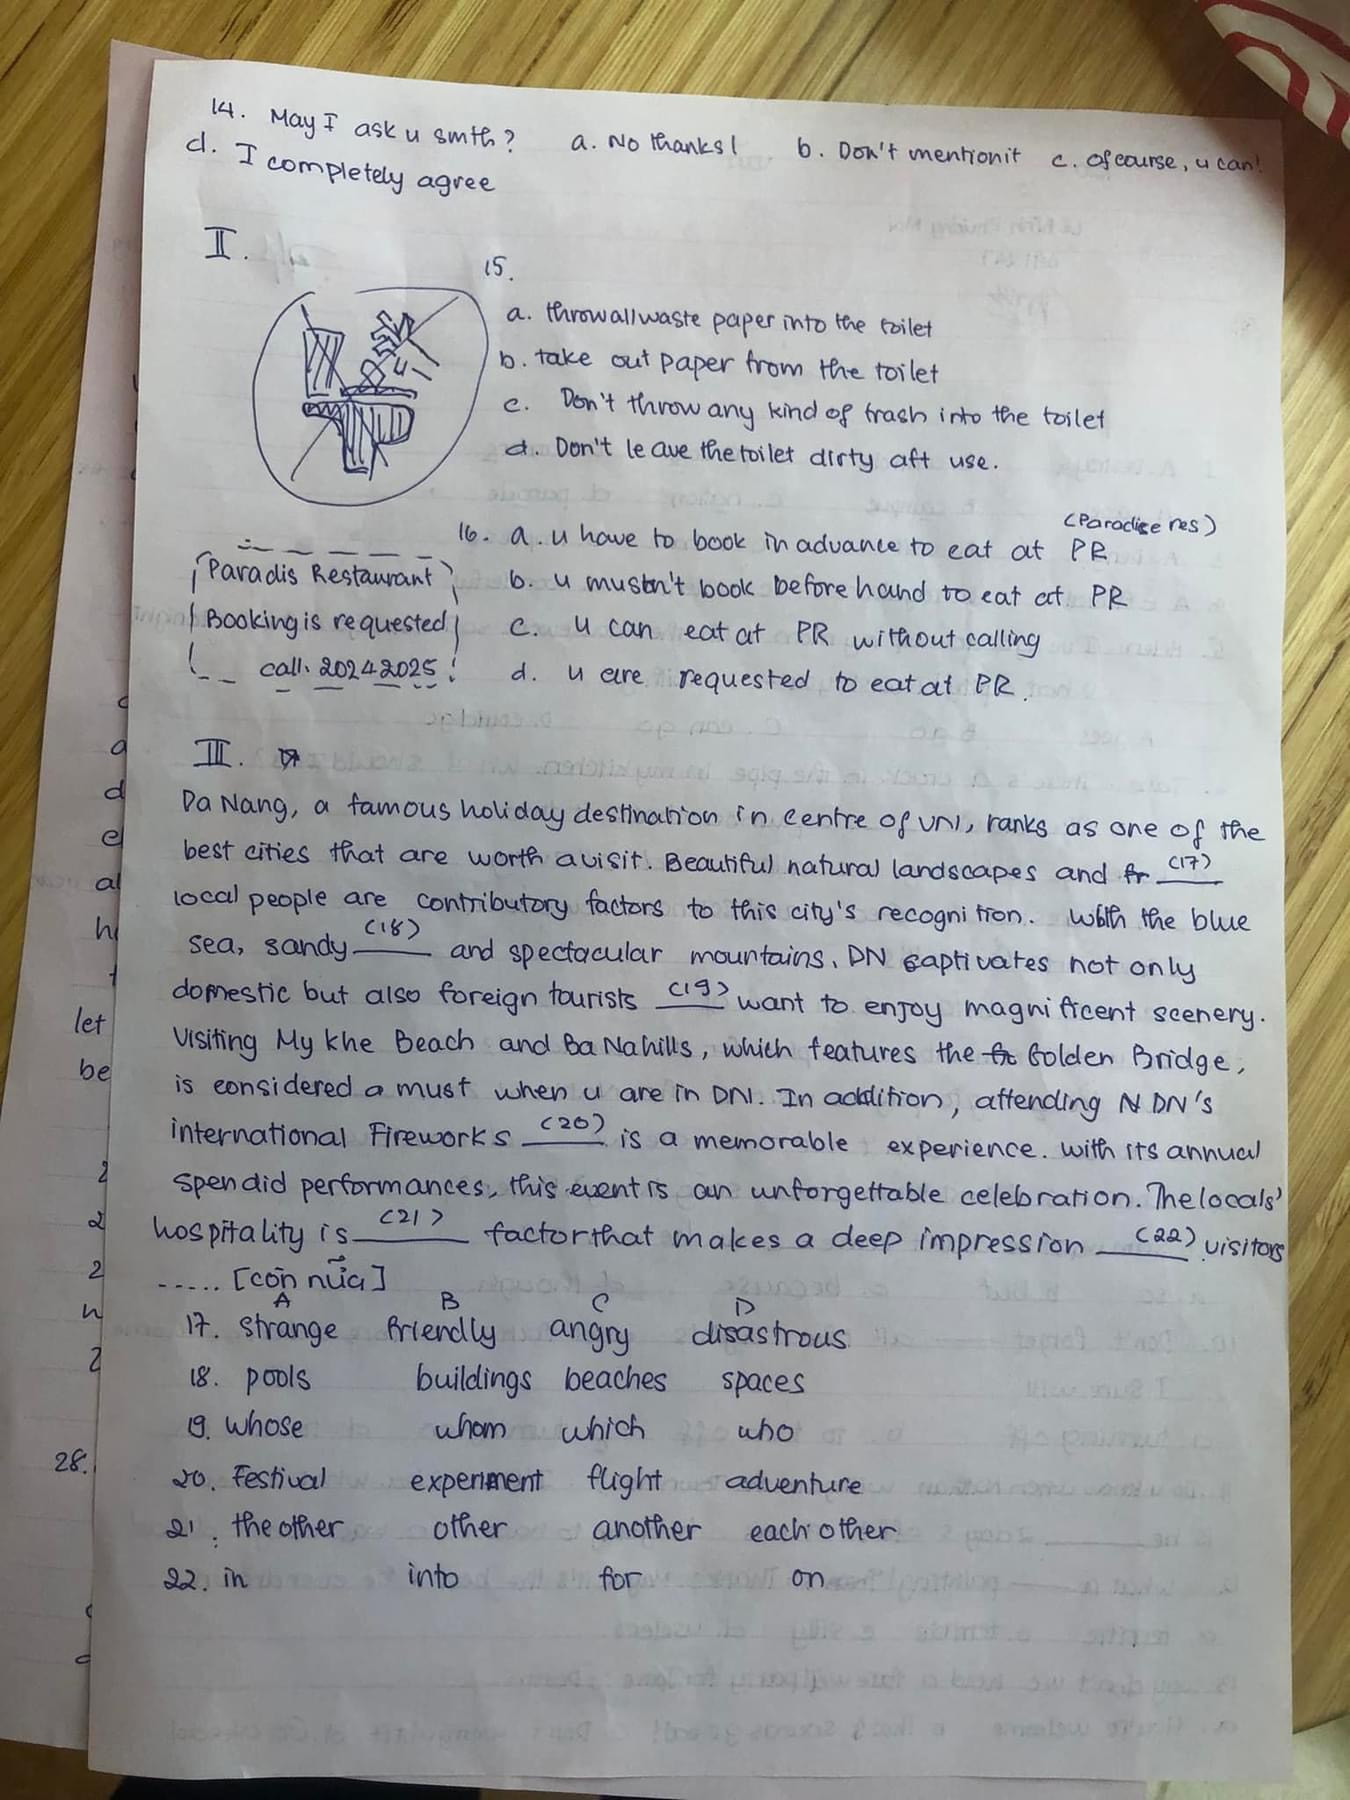 14. May I ask u smth? a. No thanks! b. Don't mention it c. of course, u can!
d. I completely agree
II.
15.
a. throw all waste paper into the toilet
b. take out paper from the toilet
c. Don't throw any kind of trash into the toilet
d. Don't leave the toilet dirty aft use.
(Paradise res)
16. a. u have to book in advance to eat at PR
Paradis Restaurant
b. u mustn't book beforehand to eat at PR
Booking is requested
c. u can eat at PR without calling
call: 20242025
d. u are requested to eat at PR.
III.
Da Nang, a famous holiday destination in centre of VN, ranks as one of the
best cities that are worth a visit. Beautiful natural landscapes and (17)
local people are contributory factors to this city's recognition. With the blue
sea, sandy (18) and spectacular mountains, DN captivates not only
domestic but also foreign tourists (19) want to enjoy magnificent scenery.
Visiting My Khe Beach and Ba Na hills, which features the Golden Bridge,
is considered a must when u are in DN. In addition, attending DN's
international Fireworks (20) is a memorable experience. with its annual
spendid performances, this event is an unforgettable celebration. The locals'
hospitality is (21) factor that makes a deep impression (22) visitors
..... [còn nữa]
A B C D
17. strange friendly angry disastrous
18. pools buildings beaches spaces
19. whose whom which who
20. Festival experiment flight adventure
21. the other other another each other
22. in into for on
let
be
28.